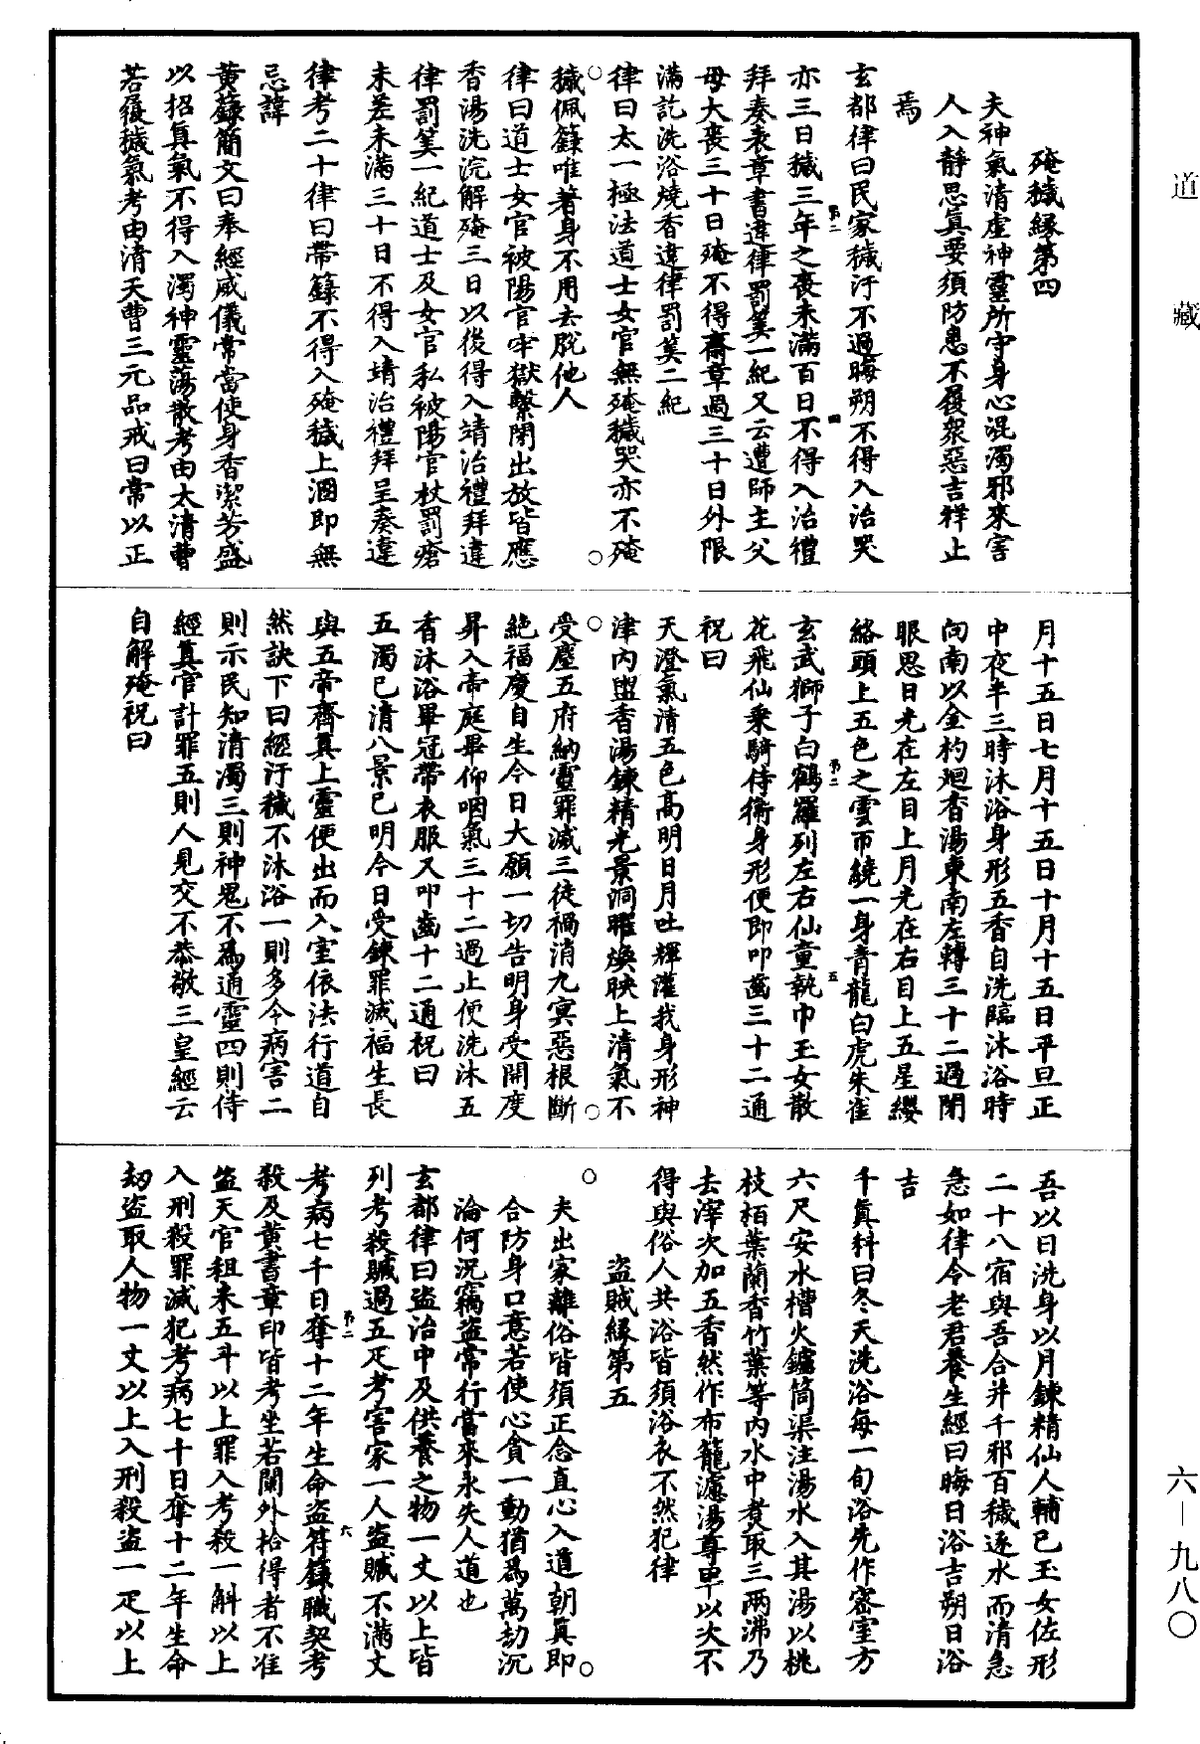 道藏
六—九八〇
殗穢緣第四
夫神氣清虛神靈所守身心混濁邪來害
人入靜思真要須防患不履衆惡吉祥止
焉
玄都律曰民家穢汙不過晦朔不得入治哭
亦三日穢三年之喪未滿百日不得入治禮
拜奏表章書違律罰筭一紀又云遭師主父
母大喪三十日殗不得齋章過三十日外限
滿訖洗浴燒香違律罰筭二紀
律曰太一極法道士女官無殗穢哭亦不殗
穢佩籙唯著身不用去脫他人
律曰道士女官被陽官牢獄繫閉出放皆應
香湯洗浣解殗三日以後得入靖治禮拜違
律罰筭一紀道士及女官私被陽官杖罰瘡
未差未滿三十日不得入靖治禮拜呈奏違
律考二十律曰帶籙不得入殗穢上溷即無
忌諱
黃籙簡文曰奉經威儀常當使身香潔芳盛
以招真氣不得入濁神靈蕩散考由太清曹
若履穢氣考由清天曹三元品戒曰常以正
月十五日七月十五日十月十五日平旦正
中夜半三時沐浴身形五香自洗臨沐浴時
向南以金杓迴香湯東南左轉三十二過閉
眼思日光在左目上月光在右目上五星纓
絡頭上五色之雲帀繞一身青龍白虎朱雀
玄武獅子白鶴羅列左右仙童執巾玉女散
花飛仙乘騎侍衛身形便即叩齒三十二通
祝曰
天澄氣清五色高明日月吐輝灌我身形神
津內盥香湯鍊精光景洞曜煥映上清氣不
受塵五府納靈罪滅三徒禍消九冥惡根斷
絕福慶自生今日大願一切告明身受開度
昇入帝庭畢仰咽氣三十二過止便洗沐五
香沐浴畢冠帶衣服又叩齒十二通祝曰
五濁已清八景已明今日受鍊罪滅福生長
與五帝齊真上靈便出而入室依法行道自
然訣下曰經汙穢不沐浴一則多今病害二
則示民知清濁三則神鬼不爲通靈四則侍
經真官計罪五則人見交不恭敬三皇經云
自解殗祝曰
吾以日洗身以月鍊精仙人輔己玉女佐形
二十八宿與吾合并千邪百穢逐水而清急
急如律令老君養生經曰晦日浴吉朔日浴
吉
千真科曰冬天洗浴每一旬浴先作密室方
六尺安水槽火鑪筒渠注湯水入其湯以桃
枝栢葉蘭香竹葉等內水中煑取三兩沸乃
去滓次加五香然作布籠濾湯尊卑以次不
得與俗人共浴皆須浴衣不然犯律
盜賊緣第五
夫出家離俗皆須正念直心入道朝真即
合防身口意若使心貪一動猶爲萬劫沉
淪何況竊盜常行當來永失人道也
玄都律曰盜治中及供養之物一丈以上皆
列考殺贓過五疋考害家一人盜贓不滿丈
考病七千日奪十二年生命盜符籙職契考
殺及黃書章印皆考坐若闌外拾得者不准
盜天官租米五斗以上罪入考殺一斛以上
入刑殺罪滅犯考病七十日奪十二年生命
劫盜取人物一丈以上入刑殺盜一疋以上